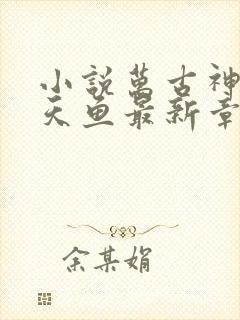 小説萬古神
天魚最新章
余某娟